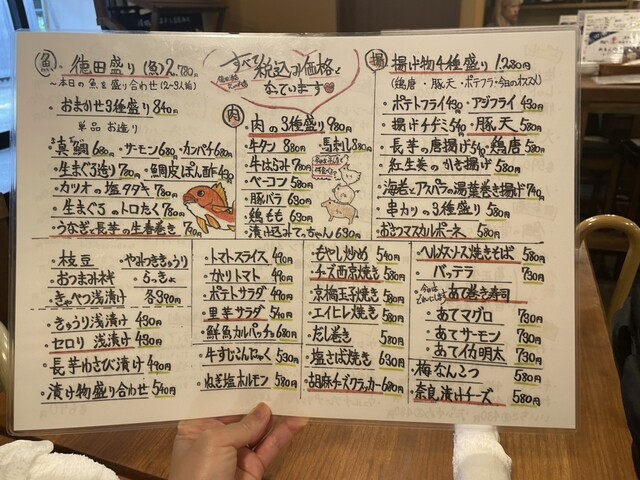 魚 徳田盛り(魚)2,780円
〜本日の魚を盛り合わせ(2〜3人前)
・おまかせ3種盛り840円
単品 お造り
・真鯛680円・サーモン680円・カンパチ680円
・生まぐろ造り780円・鯛皮ぽん酢430円
・カツオの塩タタキ 780円
・生まぐろのトロたく 780円
・うなぎと長芋の生春巻き 780円
すべて税込み価格と
なっています
肉
・肉の3種盛り980円
・牛タン 880円 ・馬刺し380円
・牛はらみ 780円
・ベーコン 580円
・豚バラ 630円
・鶏もも 630円
・漬け込みてっちゃん 630円
揚 揚げ物4種盛り1,280円
(鶏唐・豚天・ポテフラ・今日のオススメ)
・ポテトフライ430円・アジフライ 430円
・揚げチヂミ540円・豚天 580円
・長芋の唐揚げ540円・鶏唐 580円
・紅生姜のかき揚げ 580円
・海老とアスパラの湯葉巻き揚げ740円
・串カツの3種盛り 580円
・おさつマスカルポーネ 580円
・枝豆 ・やみつききゅうり
・おつまみネギ ・らっきょ
・きゃべつ浅漬け 各390円
・きゅうり浅漬け 430円
・セロリ 浅漬け 430円
・長芋わさび漬け 490円
・漬け物盛り合わせ 540円
・トマトスライス 490円
・カットトマト 490円
・ポテトサラダ 490円
・里芋サラダ 540円
・鮮魚カルパッチョ 680円
・牛すじこんにゃく 530円
・ねぎ塩ホルモン 580円
・もやし炒め 540円
・チーズ西京焼き 580円
・京橋玉子焼き 580円
・エイヒレ焼き 580円
・だし巻き 580円
・塩さば焼き 630円
・胡麻チーズクラッカー 680円
・ヘルメスソース焼きそば 580円
・バッテラ 730円
・あて巻き寿司
・あてマグロ 730円
・あてサーモン 730円
・あてイカ明太 730円
・梅なんこつ 580円
・奈良漬けチーズ 580円